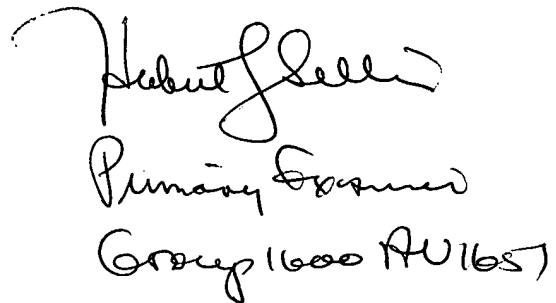 Herbert J Lilling
Primary Examiner
Group 1600 AU 1651